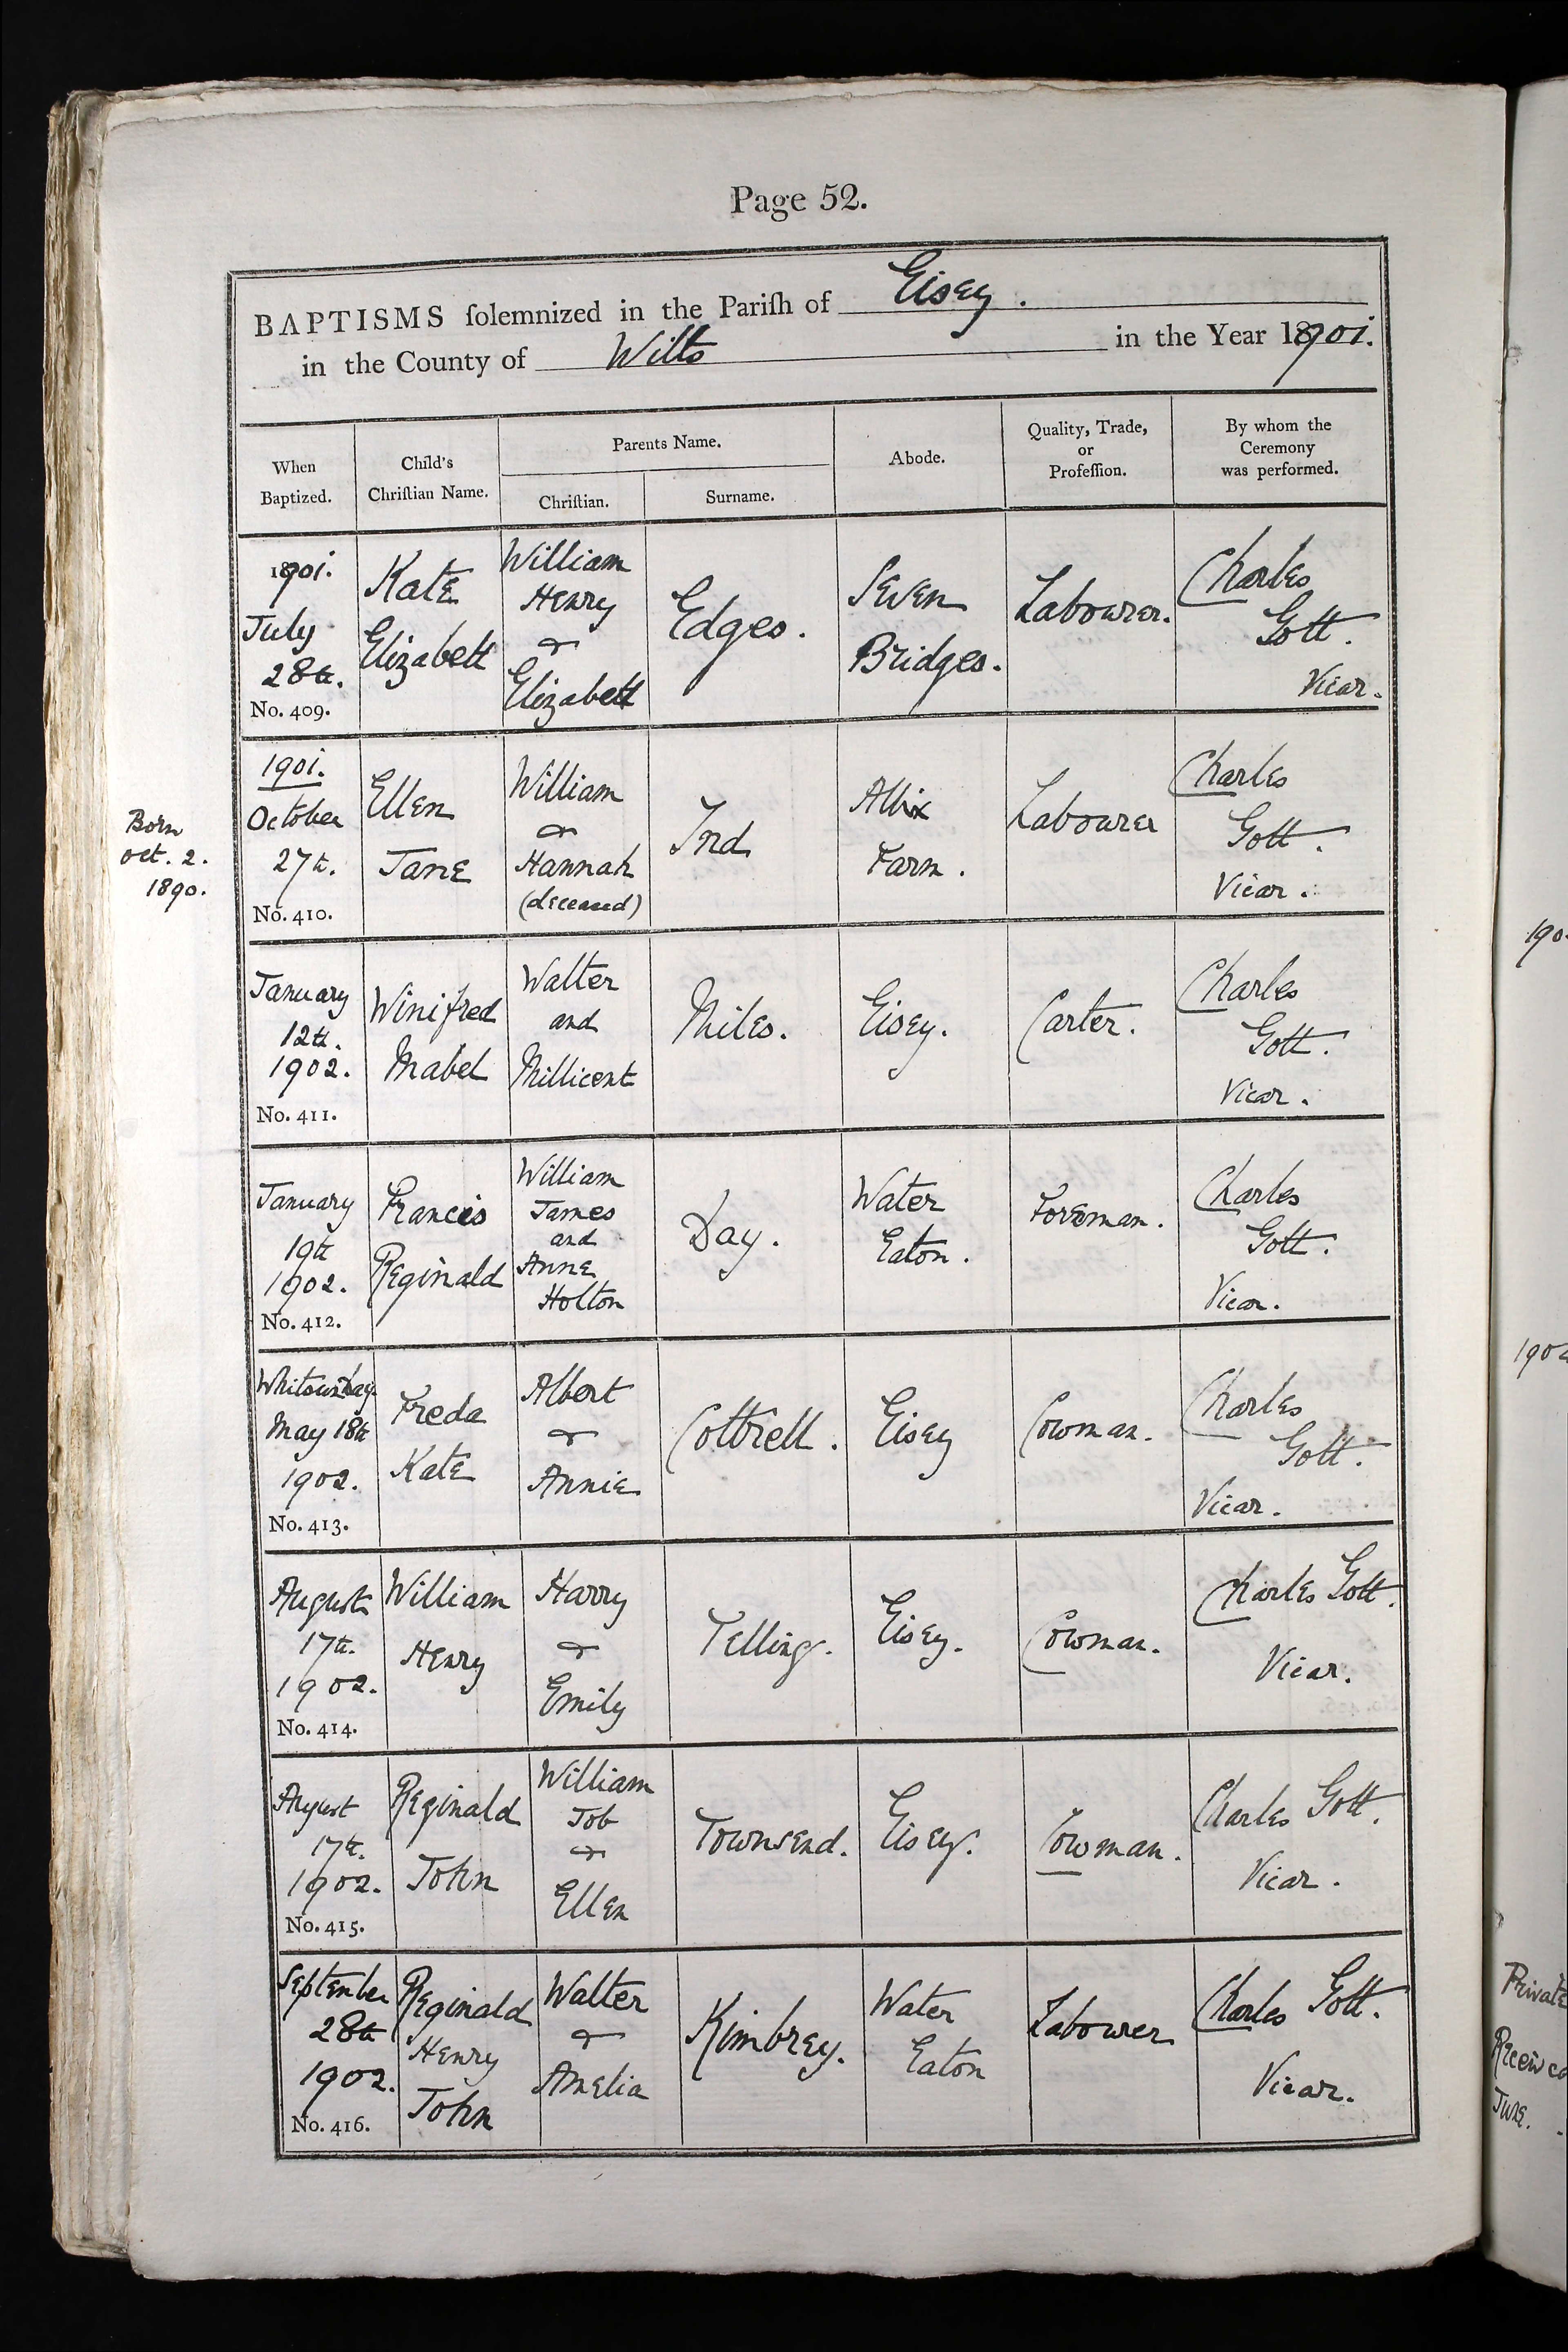 Page 52.
BAPTISMS ſolemnized in the Pariſh of Eisey.
in the County of Wilts in the Year 1901.
When Baptized.
Child's Chriſtian Name.
Parents Name.
Chriſtian.
Surname.
Abode.
Quality, Trade, or Profeſſion.
By whom the Ceremony was performed.
1901.
July
28th.
No. 409.
Kate
Elizabeth
William
Henry
&
Elizabeth
Edges.
Seven
Bridges.
Labourer.
Charles
Gott.
Vicar.
Born
Oct. 2.
1890.
1901.
October
27th.
No. 410.
Ellen
Jane
William
&
Hannah
(deceased)
Ind
Alix
Farm.
Labourer
Charles
Gott.
Vicar.
January
12th.
1902.
No. 411.
Winifred
Mabel
Walter
and
Millicent
Miles.
Eisey.
Carter.
Charles
Gott.
Vicar.
January
19th
1902.
No. 412.
Francis
Reginald
William
James
and
Anne
Holton
Day.
Water
Eaton.
Foreman.
Charles
Gott.
Vicar.
Whitsunday
May 18th
1902.
No. 413.
Freda
Kate
Albert
&
Annie
Cottrell.
Eisey
Cowman.
Charles
Gott.
Vicar.
August
17th.
1902.
No. 414.
William
Henry
Harry
&
Emily
Telling.
Eisey.
Cowman.
Charles Gott.
Vicar.
August
17th.
1902.
No. 415.
Reginald
John
William
Job
&
Ellen
Townsend.
Eisey.
Cowman.
Charles Gott.
Vicar.
September
28th
1902.
No. 416.
Reginald
Henry
John
Walter
&
Amelia
Kimbrey.
Water
Eaton
Labourer
Charles Gott.
Vicar.
190
190
Private
June.